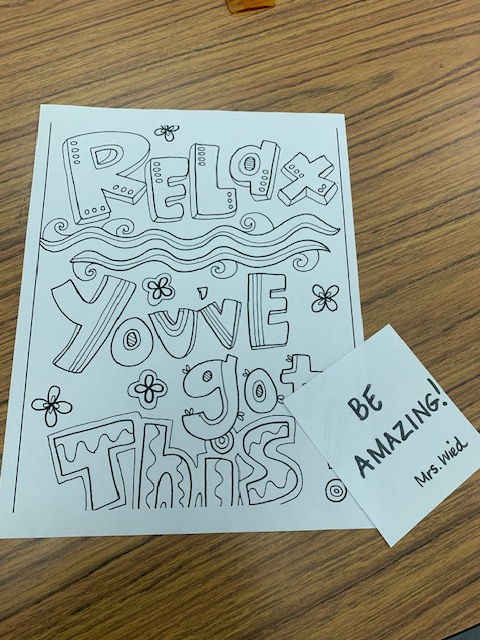 RELax
You'vE
got
This
BE
AMAZING!
Mrs. Wied